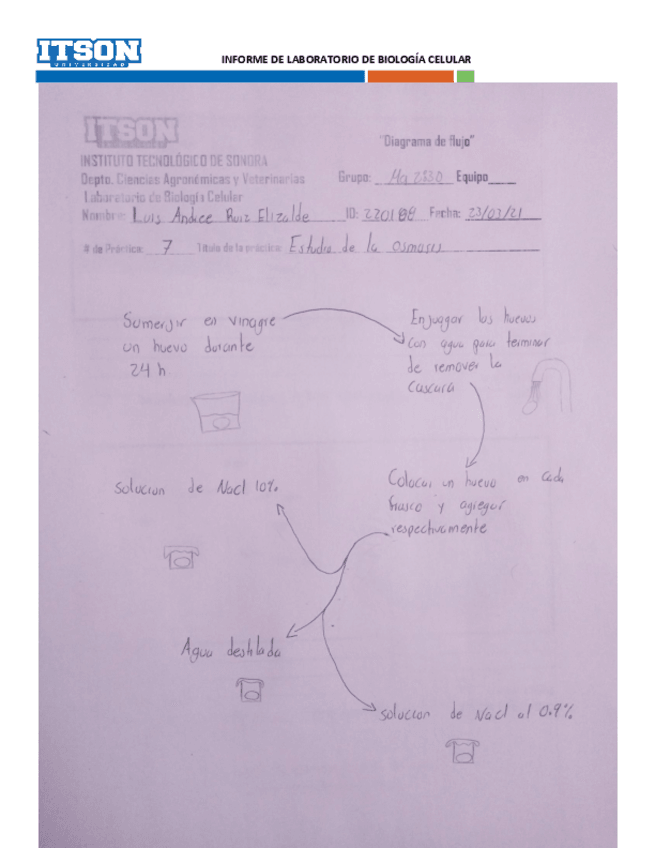 ITSON
UNIVERSIDAD
INFORME DE LABORATORIO DE BIOLOGÍA CELULAR
ITSON
"Diagrama de flujo"
INSTITUTO TECNOLÓGICO DE SONORA
Depto. Ciencias Agronómicas y Veterinarias
Grupo: Equipo
Laboratorio de Biología Celular
Nombre: Luis Andree Ruiz Elizalde ID: 230188 Fecha: 23/03/21
# de Práctica: 7 Título de la práctica: Estudio de la osmosis
Sumergir en vinagre
un huevo durante
24 h
Enjuagar los huevos
con agua para terminar
de remover la
cascara
Colocar un huevo en cada
frasco y agregar
respectivamente
solucion de NaCl 10%
Agua destilada
solucion de NaCl al 0.9%